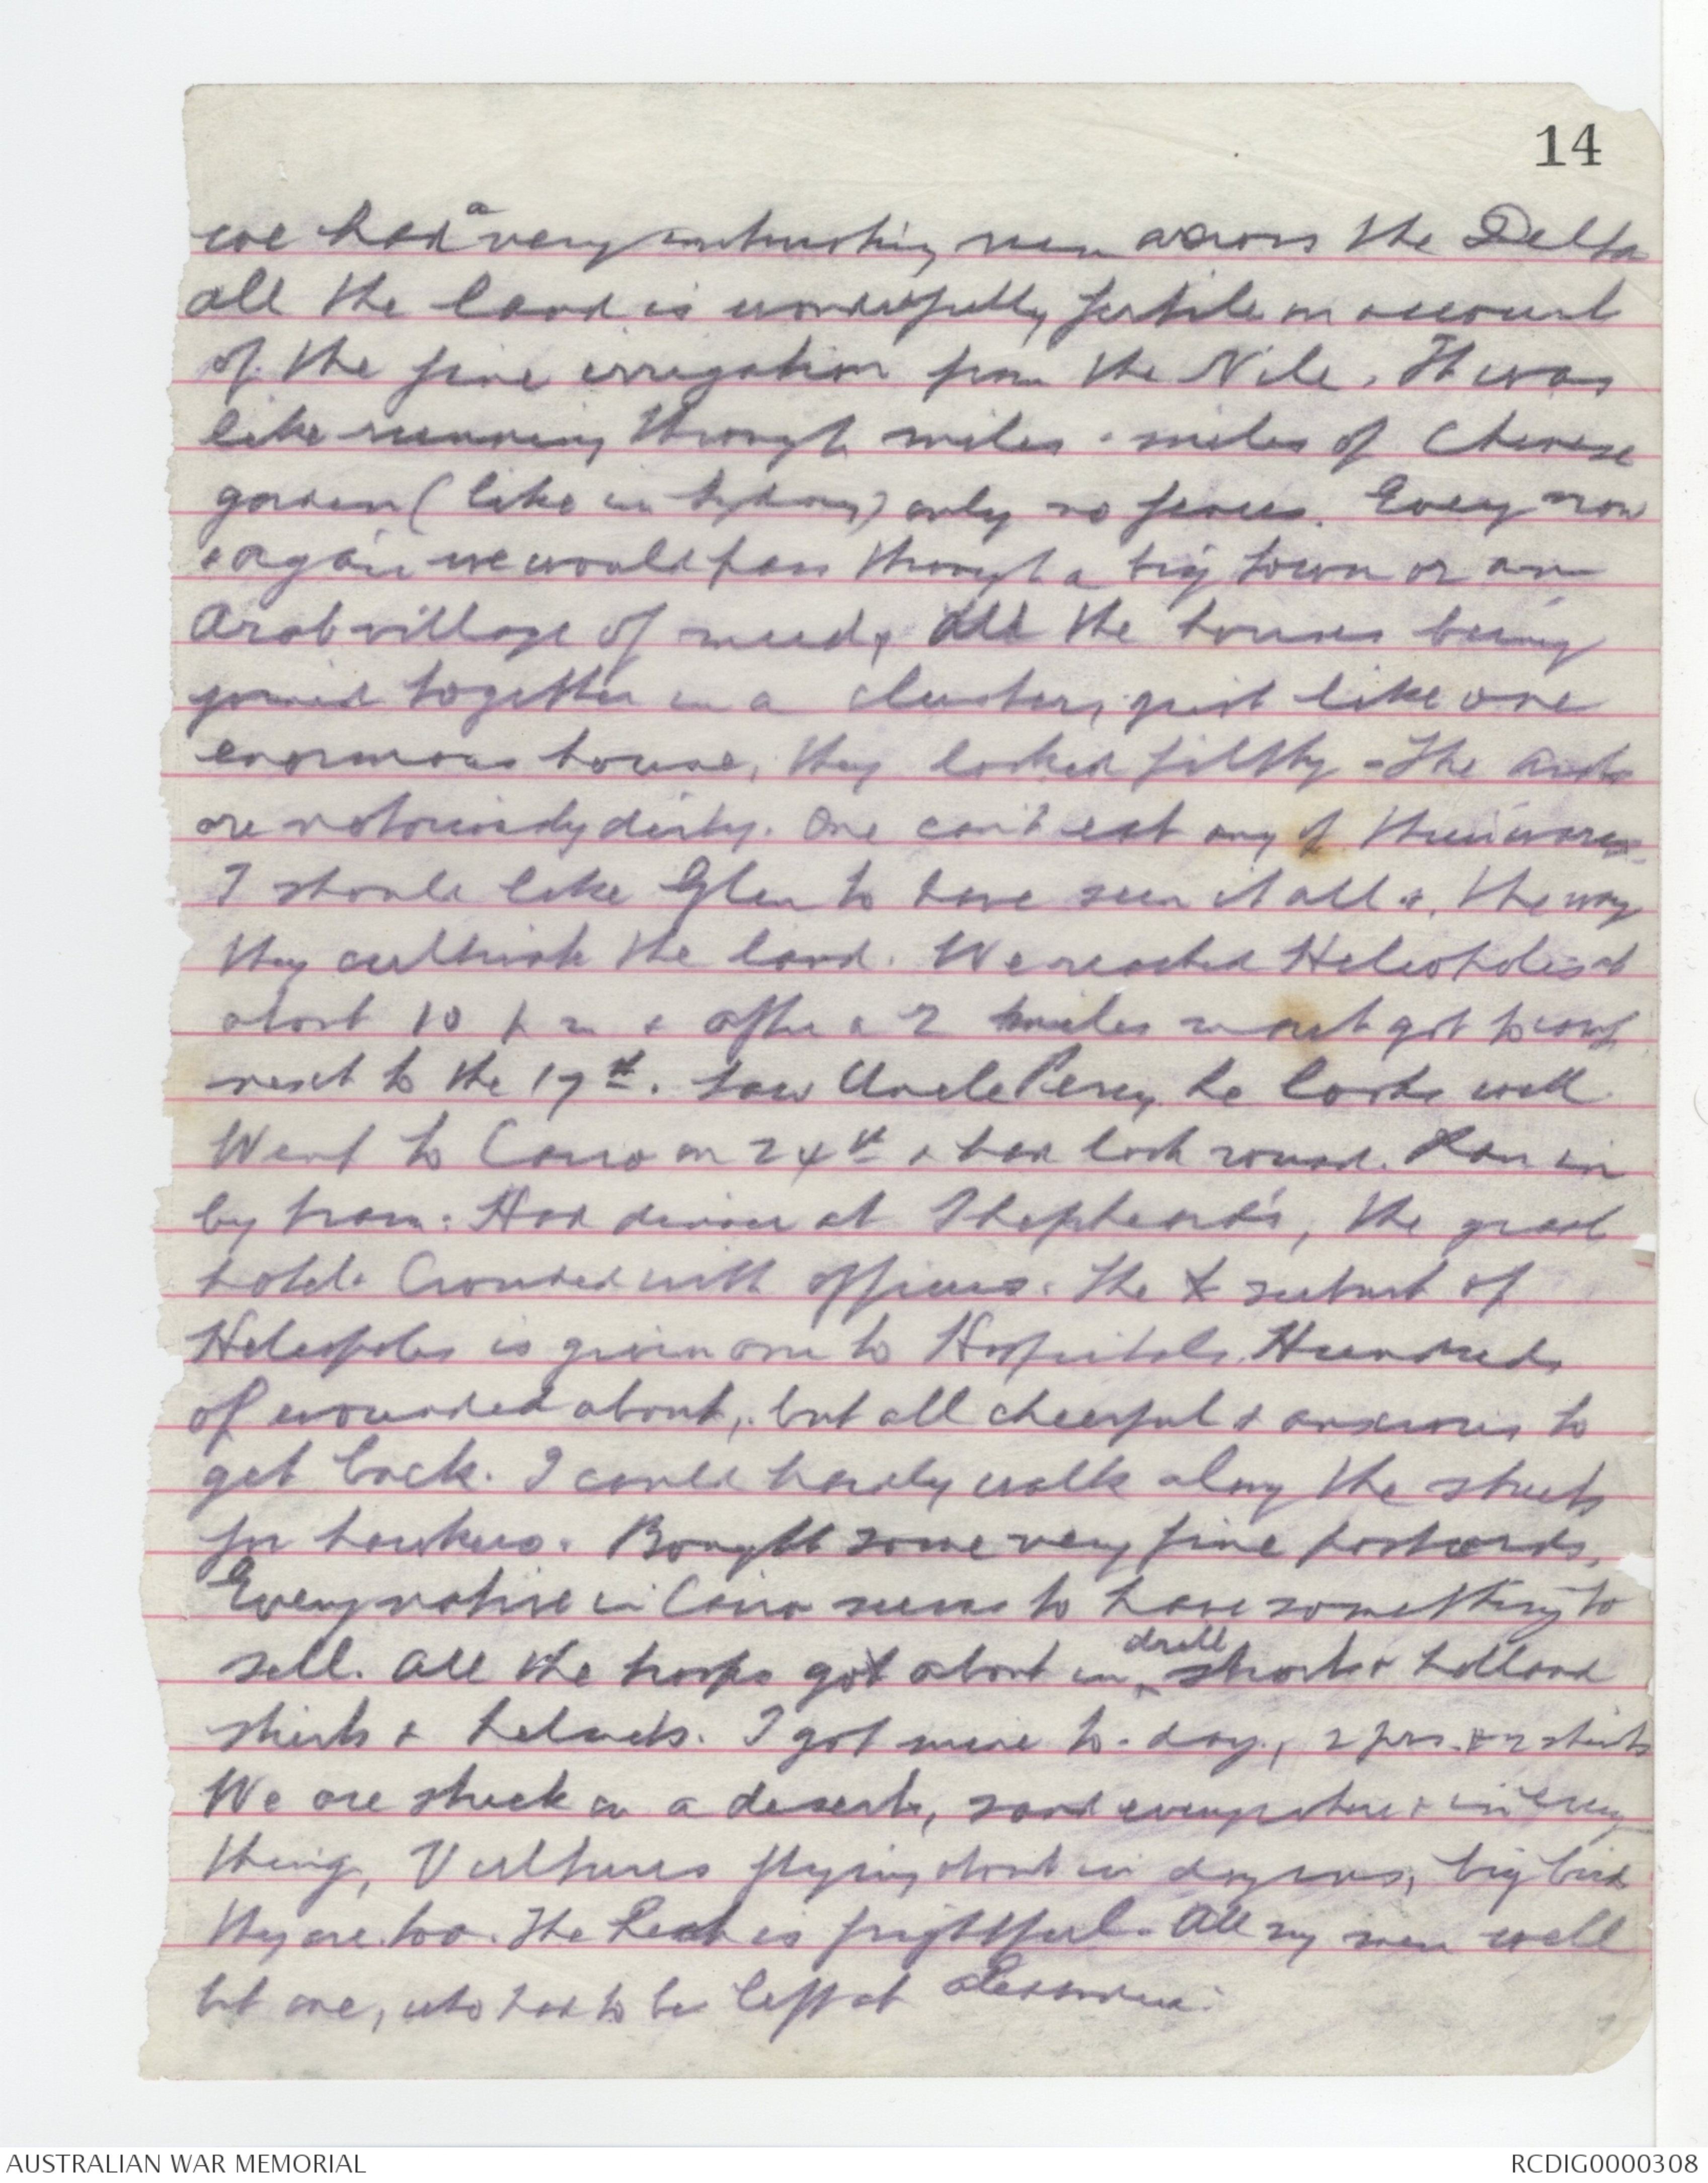 14
we had a very interesting run across the Delta
all the land is wonderfully fertile on account
of the fine irrigation from the Nile. It was
like running through miles & miles of Chinese
garden (like in Sydney) only no fences. Every now
& again we would pass through a big town or an
Arab village of mud, all the houses being
joined together in a cluster, just like one
enormous house, they looked filthy - The Arabs
are notoriously dirty. One can't eat any of their wares.
I should like Glen to have seen it all &, the way
they cultivate the land. We reached Heliopolis at
about 10 p m & after a 2 miles march got to camp
next to the 17th. Saw Uncle Percy, he looks well.
Went to Cairo on 24th & had look round. Ran in
by tram. Had dinner at Shepheard's, the great
hotel. Crowded with officers. The suburb of
Heliopolis is given over to Hospitals. Hundreds
of wounded about, but all cheerful & anxious to
get back. I could hardly walk along the streets
for hawkers. Bought some very fine postcards.
Every native in Cairo seems to have something to
sell. All the troops go about in drill shorts & holland
shirts & helmets. I got mine to-day, 2 prs. & 2 shirts
We are stuck on a desert, sand everywhere & in every
thing, Vultures flying about in dozens, big birds
they are too. The heat is frightful. All my men well
but one, who had to be left at Alexandria.
AUSTRALIAN WAR MEMORIAL
RCDIG0000308